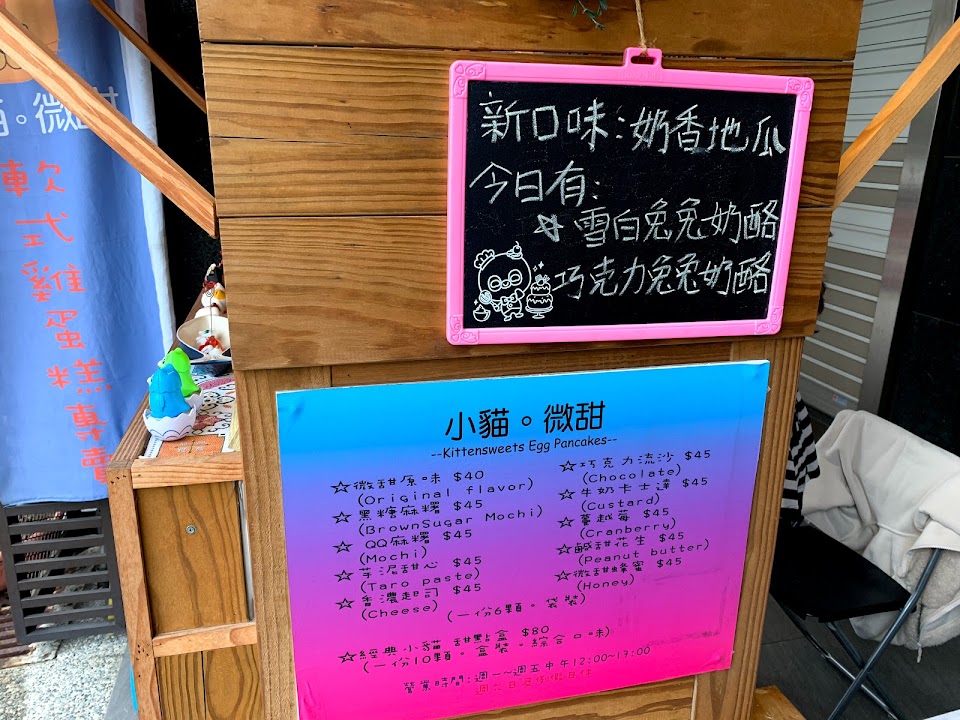 新口味：奶香地瓜
今日有：
☆雪白兔兔奶酪
巧克力兔兔奶酪
貓。微甜
軟式雞蛋糕專賣
小貓。微甜
--Kittensweets Egg Pancakes--
☆微甜原味 $40
(Original flavor)
☆黑糖麻糬 $45
(BrownSugar Mochi)
☆QQ麻糬 $45
(Mochi)
☆芋泥甜心 $45
(Taro paste)
☆香濃起司 $45
(Cheese)
☆巧克力流沙 $45
(Chocolate)
☆牛奶卡士達 $45
(Custard)
☆蔓越莓 $45
(Cranberry)
☆鹹甜花生 $45
(Peanut butter)
☆微甜蜂蜜 $45
(Honey)
(一份6顆。袋裝)
☆經典小貓 甜點盒 $80
(一份10顆。盒裝。綜合口味)
營業時間:週一~週五中午12:00~17:00